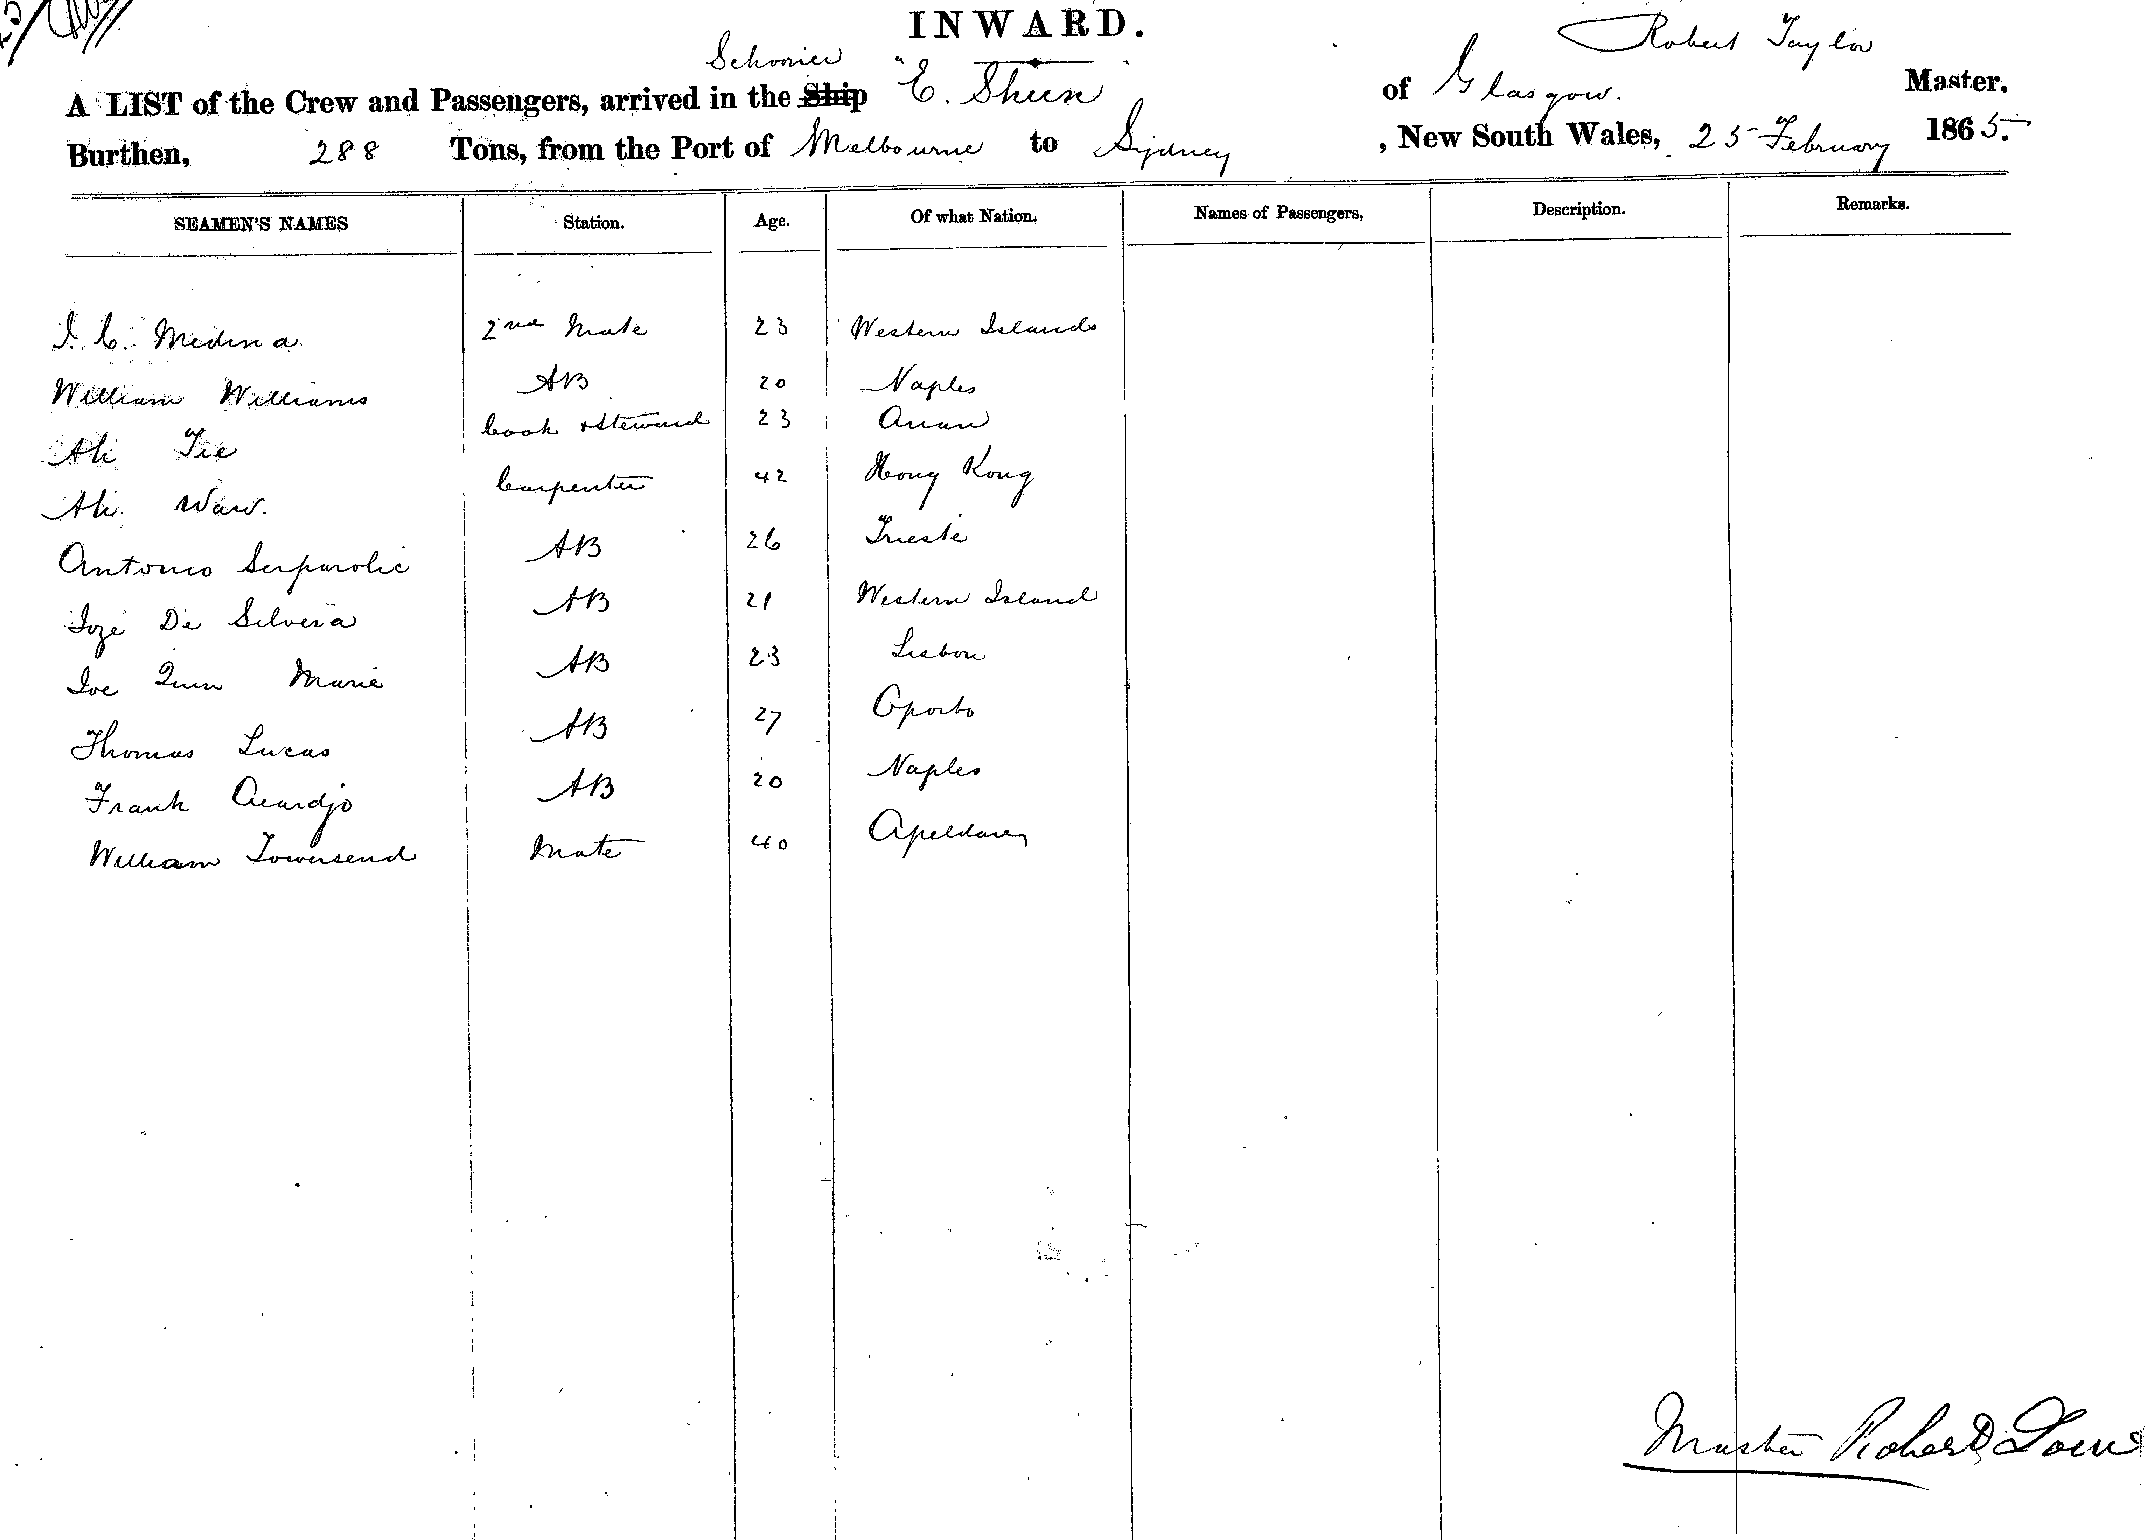 INWARD.
Robert Taylor
Schooner
A LIST of the Crew and Passengers, arrived in the Ship "E. Shun" of Glasgow. Master.
Burthen, 288 Tons, from the Port of Melbourne to Sydney, New South Wales, 25 February 1865.
SEAMEN'S NAMES Station. Age. Of what Nation. Names of Passengers, Description. Remarks.
I. C. Medina 2nd Mate 23 Western Islands
William Williams AB 20 Naples
Ah Fee Cook & Steward 23 
Ah. Waw. Carpenter 42 Hong Kong
Antonio AB 26 Trieste
Joze De Silvera AB 21 Western Island
Joe Quin Marie AB 23 Lisbon
Thomas Lucas AB 27 Oporto
Frank AB 20 Naples
William Townsend Mate 40
Master Robert